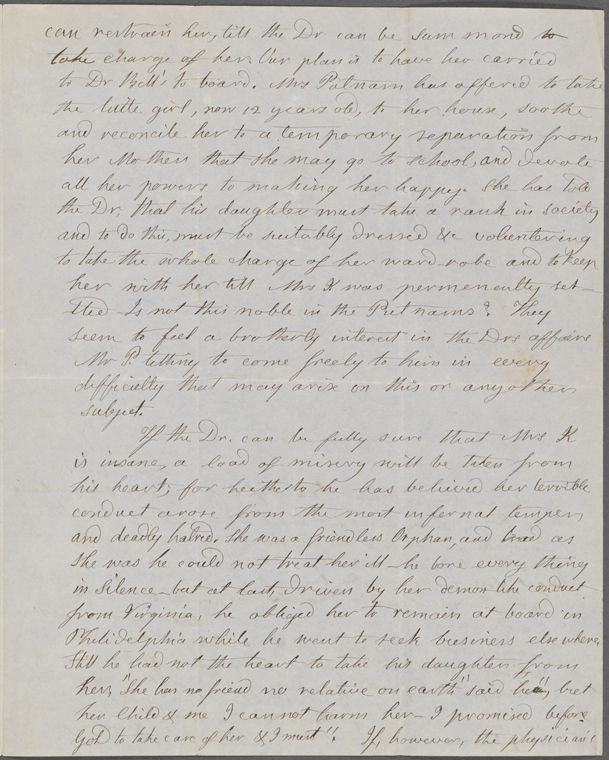 can restrain her, till the Dr can be summond to
take charge of her. Our plan is to have her carried
to Dr Bell's to board. Mrs Putnam has offered to take
the little girl, now 12 years old, to her house, soothe
and reconcile her to a temporary separation from
her Mother that she may go to school, and devote
all her powers to making her happy. She has told
the Dr. that his daughter must take a rank in society
and to do this, must be suitably dressed &c volunteering
to take the whole charge of her ward-robe and to keep
her with her till Mrs K was permenently set-
tled - Is not this noble in the Putnams? They
seem to feel a brotherly interest in the Drs affairs
Mr P. telling to come freely to him in every
difficulty that may arise on this or any other
subject.
If the Dr. can be fully sure that Mrs K
is insane, a load of misery will be taken from
his heart; for heitherto he has believed her terrible
conduct arose from the most infernal temper,
and deadly hatred. She was a friendless Orphan, and bad as
she was he could not treat her ill - he bore every thing
in silence - but at last, driven by her demon like conduct
from Virginia, he obliged her to remain at board in
Philidelphia while he went to seek business elsewhere,
Still he had not the heart to take his daughter from
her, "She has no friend no relative on earth" said he, "but
her Child & me I cannot harm her - I promised before
God to take care of her & I must"! If, however, the physician's